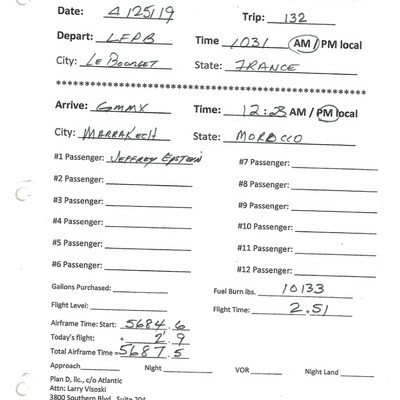 Date: 4/25/19 Trip: 132
Depart: LFPB Time 1031 AM / PM local
City: Le Bourget State: FRANCE
**********************************************************
Arrive: GMMX Time: 12:23 AM / PM local
City: MARRAKECH State: MOROCCO
#1 Passenger: JEFFREY EPSTEIN #7 Passenger:
#2 Passenger: #8 Passenger:
#3 Passenger: #9 Passenger:
#4 Passenger: #10 Passenger:
#5 Passenger: #11 Passenger:
#6 Passenger: #12 Passenger:
Gallons Purchased: Fuel Burn lbs. 10133
Flight Level: Flight Time: 2.51
Airframe Time: Start: 5684.6
Today's flight: + 2.9
Total Airframe Time = 5687.5
Approach Night VOR Night Land
Plan D, llc, c/o Atlantic
Attn: Larry Visoski
3800 Southern Blvd. Suite 204